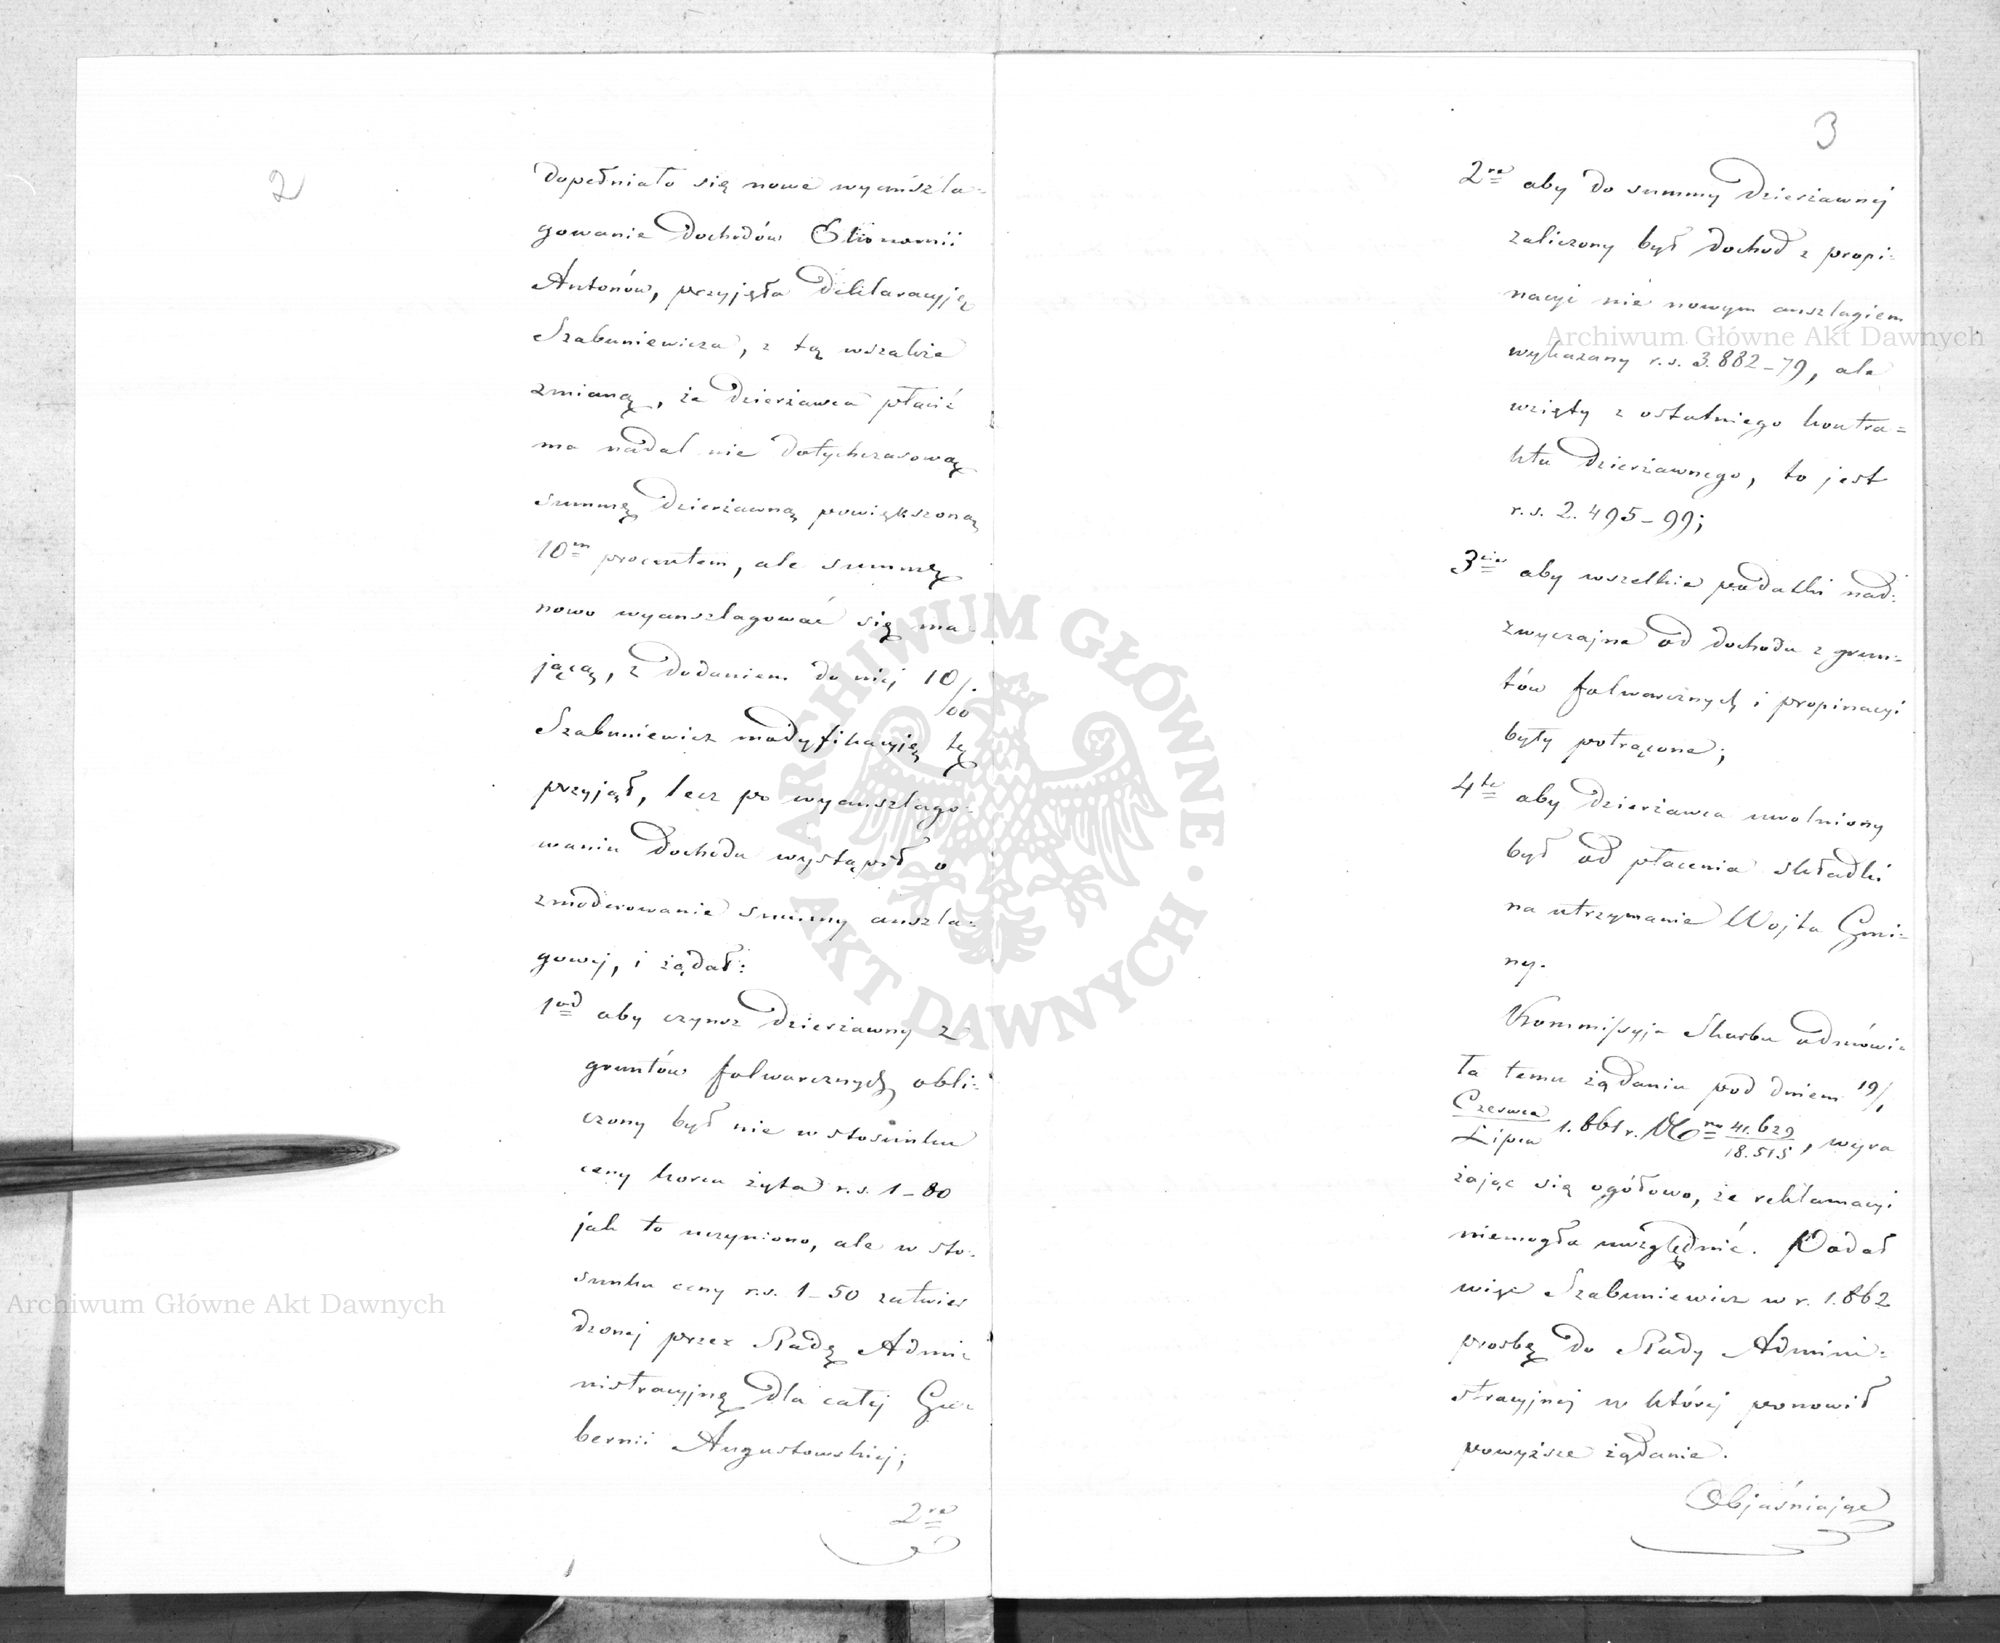 2
dopełniało się nowe wyanszla-
gowanie dochodów Ekonomii
Antonów, przyjęła deklaracyję
Szabuniewicza, z tą wszakże
zmianą, że dzierżawca płacić
ma nadal nie dotychczasową
summę dzierżawną powiększoną
10em procentem, ale summę
nowo wyanszlagować się ma-
jącą, z dodaniem do niej 10/.
/00
Szabuniewicz modyfikacyję tę
przyjął, lecz po wyanszlago-
waniu dochodu wystąpił o
zmoderowanie summy anszla-
gowej, i żądał:
1od aby czynsz dzierżawny z
gruntów folwarcznych obli-
czony był nie w stosunku
ceny korca żyta r.s. 1-80
jak to uczyniono, ale w sto-
sunku ceny r.s. 1-50 zatwier
dzonej przez Radę Admi-
nistracyjną dla całej Gu-
bernii Augustowskiej;
2re
3
2re aby do summy dzierżawnej
zaliczony był dochod z propi-
nacyi nie nowym anszlagiem
wykazany r.s. 3.882-79, ale
wzięty z ostatniego kontra=
ktu dzierżawnego, to jest
r.s. 2.495-99;
3cie aby wszelkie podatki nad-
zwyczajne od dochodu z grun-
tów folwarcznych i propinacyi
były potrącone;
4te aby dzierżawca uwolniony
był od płacenia składki
na utrzymanie Wojta Gmi-
ny.
Kommissyja Skarbu odmówi-
ła temu żądaniu pod dniem 19/1
Czerwca
Lipca 1.861 r. No 41.629
18.515, wyra
żając się ogółowo, że reklamacyi
niemogła uwzględnić. Podał
więc Szabuniewicz w r. 1.862
prosbę do Rady Admini-
stracyjnej w której ponowił
powyższe żądanie.
Objaśniając
Archiwum Główne Akt Dawnych
Archiwum Główne Akt Dawnych
ARCHIWUM GŁÓWNE · AKT DAWNYCH ·